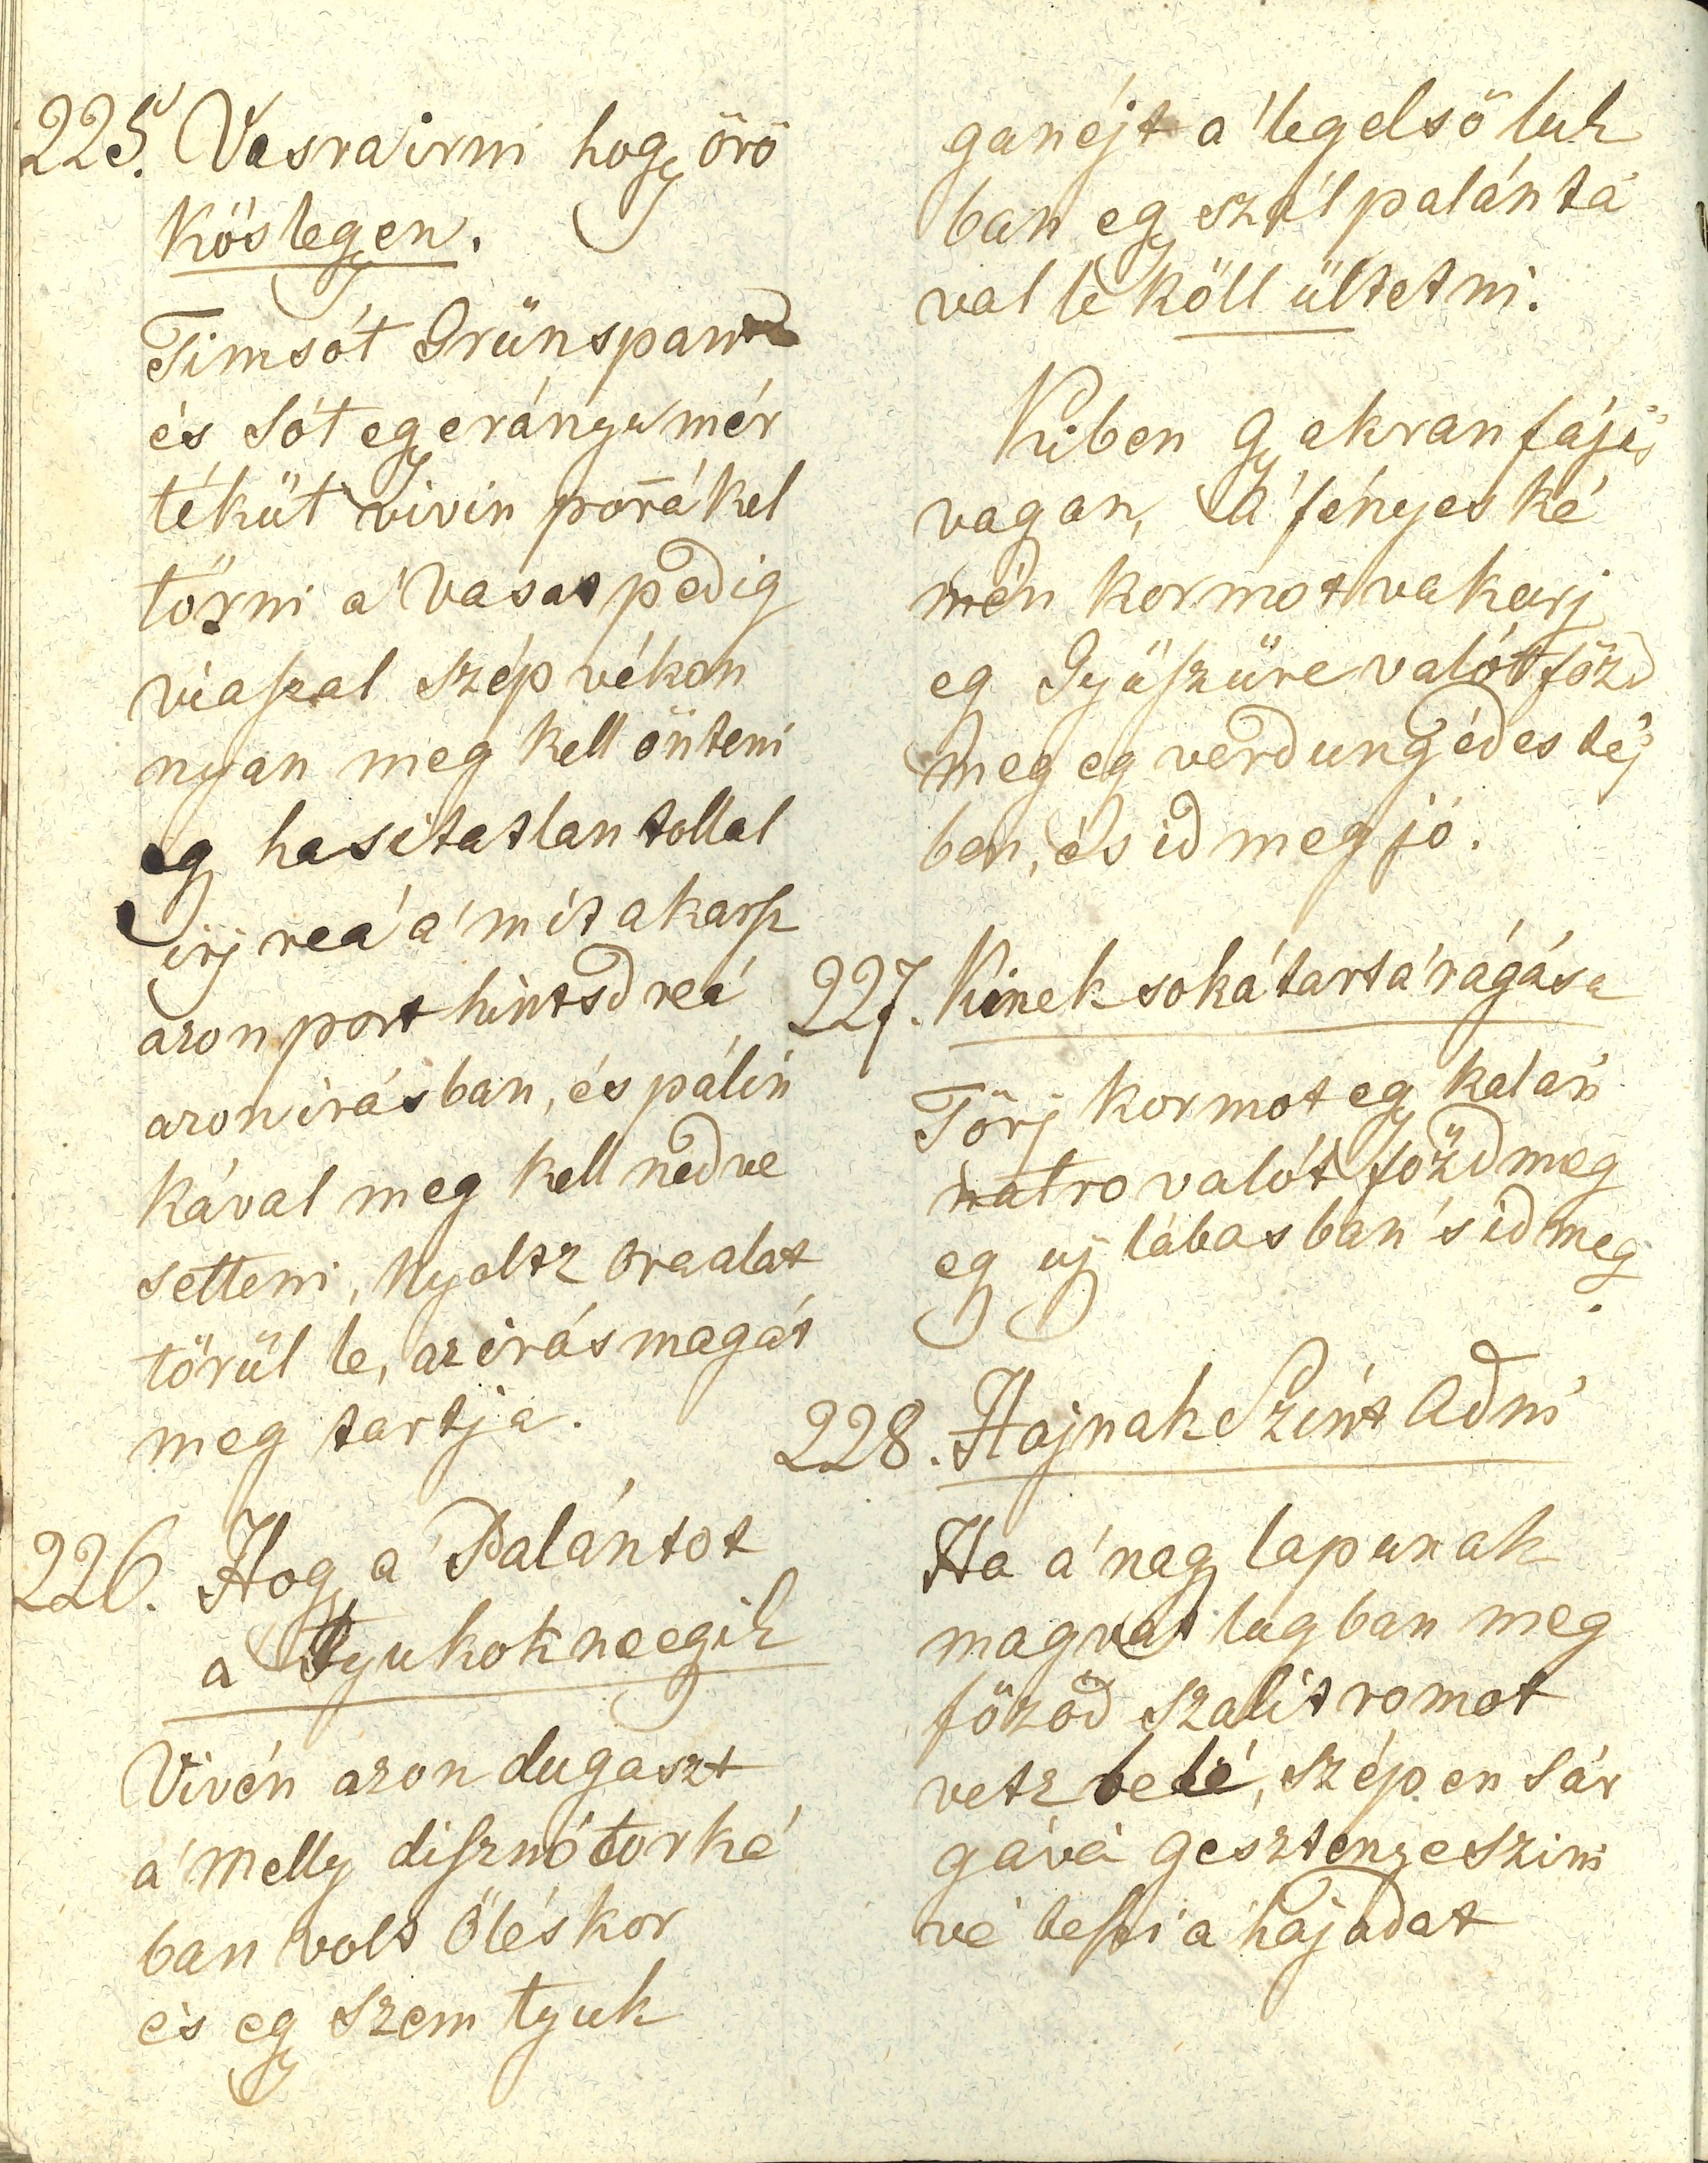 225. Vasra irni hogy örö
kös legyen.
Timsót Grünspant
és sót egy erányu mér
téküt vivin porrá kel
törni a' vasat pedig
viaszal szép vékon
nyan meg kell önteni
egy hasitatlan tollal
irj reá a' mit akarsz
azon port hintsd reá
azon irásban, és pálin
kával meg kell nedve
setteni, nyoltz ora alat
törül le, az irás magát
meg tartja.
226. Hogy a' Palántot
a Tyukok ne egik
Vivén azon dugaszt
a' melly disznó torká
ban volt öléskor
és egy szem tyuk
ganéjt a' legelső luk
ban egy szál palántá
val le köll ültetni.
Kiben gyakran fájás
vagyon, a' fényes ké
mén kormot vakarj
eg Gyüszüre valót főzd
meg eg verdung édes téj
ben, és id meg jó.
227. Kinek soká tart a' rágása
Törj kormot egy kalán
natro valót főzd meg
eg uj lábasban 's id meg
.
228. Hajnak Szint Adni
Ha a' nagy lapunak
magvat lugban meg
főzöd szalitromot
vetz belé, szépen sár
gává gesztenye szini
vé teszi a' hajadat